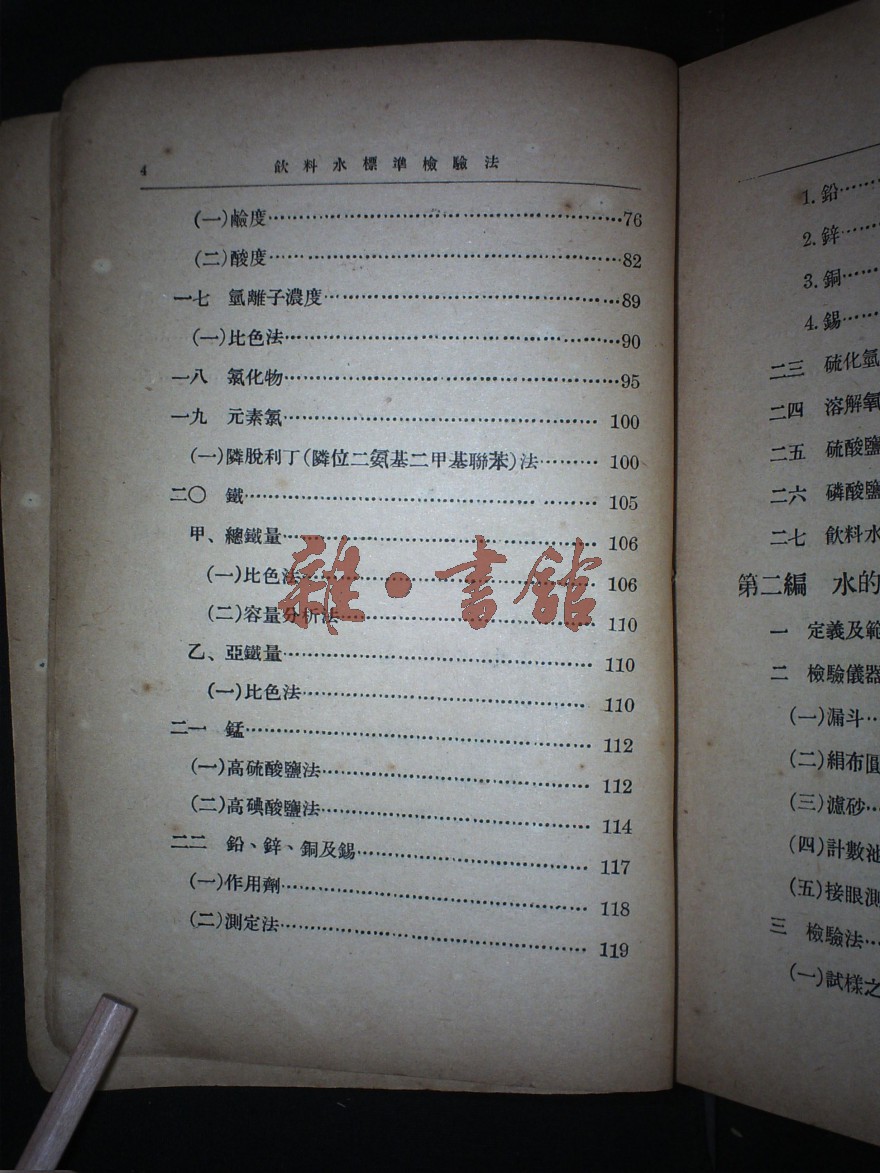 4 飲料水標準檢驗法
(一)鹼度⋯⋯76
(二)酸度⋯⋯82
一七 氫離子濃度⋯⋯89
(一)比色法⋯⋯90
一八 氯化物⋯⋯95
一九 元素氯⋯⋯100
(一)隣脫利丁(隣位二氨基二甲基聯苯)法⋯⋯100
二〇 鐵⋯⋯105
甲、總鐵量⋯⋯106
(一)比色法⋯⋯106
(二)容量分析法⋯⋯110
乙、亞鐵量⋯⋯110
(一)比色法⋯⋯110
二一 錳⋯⋯112
(一)高硫酸鹽法⋯⋯112
(二)高碘酸鹽法⋯⋯114
二二 鉛、鋅、銅及錫⋯⋯117
(一)作用劑⋯⋯118
(二)測定法⋯⋯119
雜·書館
1.鉛⋯⋯
2.鋅⋯⋯
3.銅⋯⋯
4.錫⋯⋯
二三 硫化氫
二四 溶解氧
二五 硫酸鹽
二六 磷酸鹽
二七 飲料水
第二編 水的
一 定義及範
二 檢驗儀器
(一)漏斗⋯
(二)絹布圓
(三)濾砂⋯
(四)計數池
(五)接眼測
三 檢驗法⋯
(一)試樣之